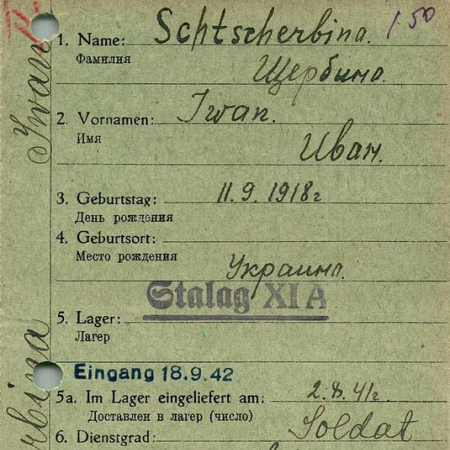 1. Name: Schtscherbina. 1.50
Фамилия
Щербина.
2. Vornamen: Iwan.
Имя
Иван.
3. Geburtstag: 11.9.1918г
День рождения
4. Geburtsort:
Место рождения
Украина.
Stalag XI A
5. Lager:
Лагер
Eingang 18.9.42
5a. Im Lager eingeliefert am: 2.8.41г.
Доставлен в лагер (число)
6. Dienstgrad: Soldat
Iwan
rbina